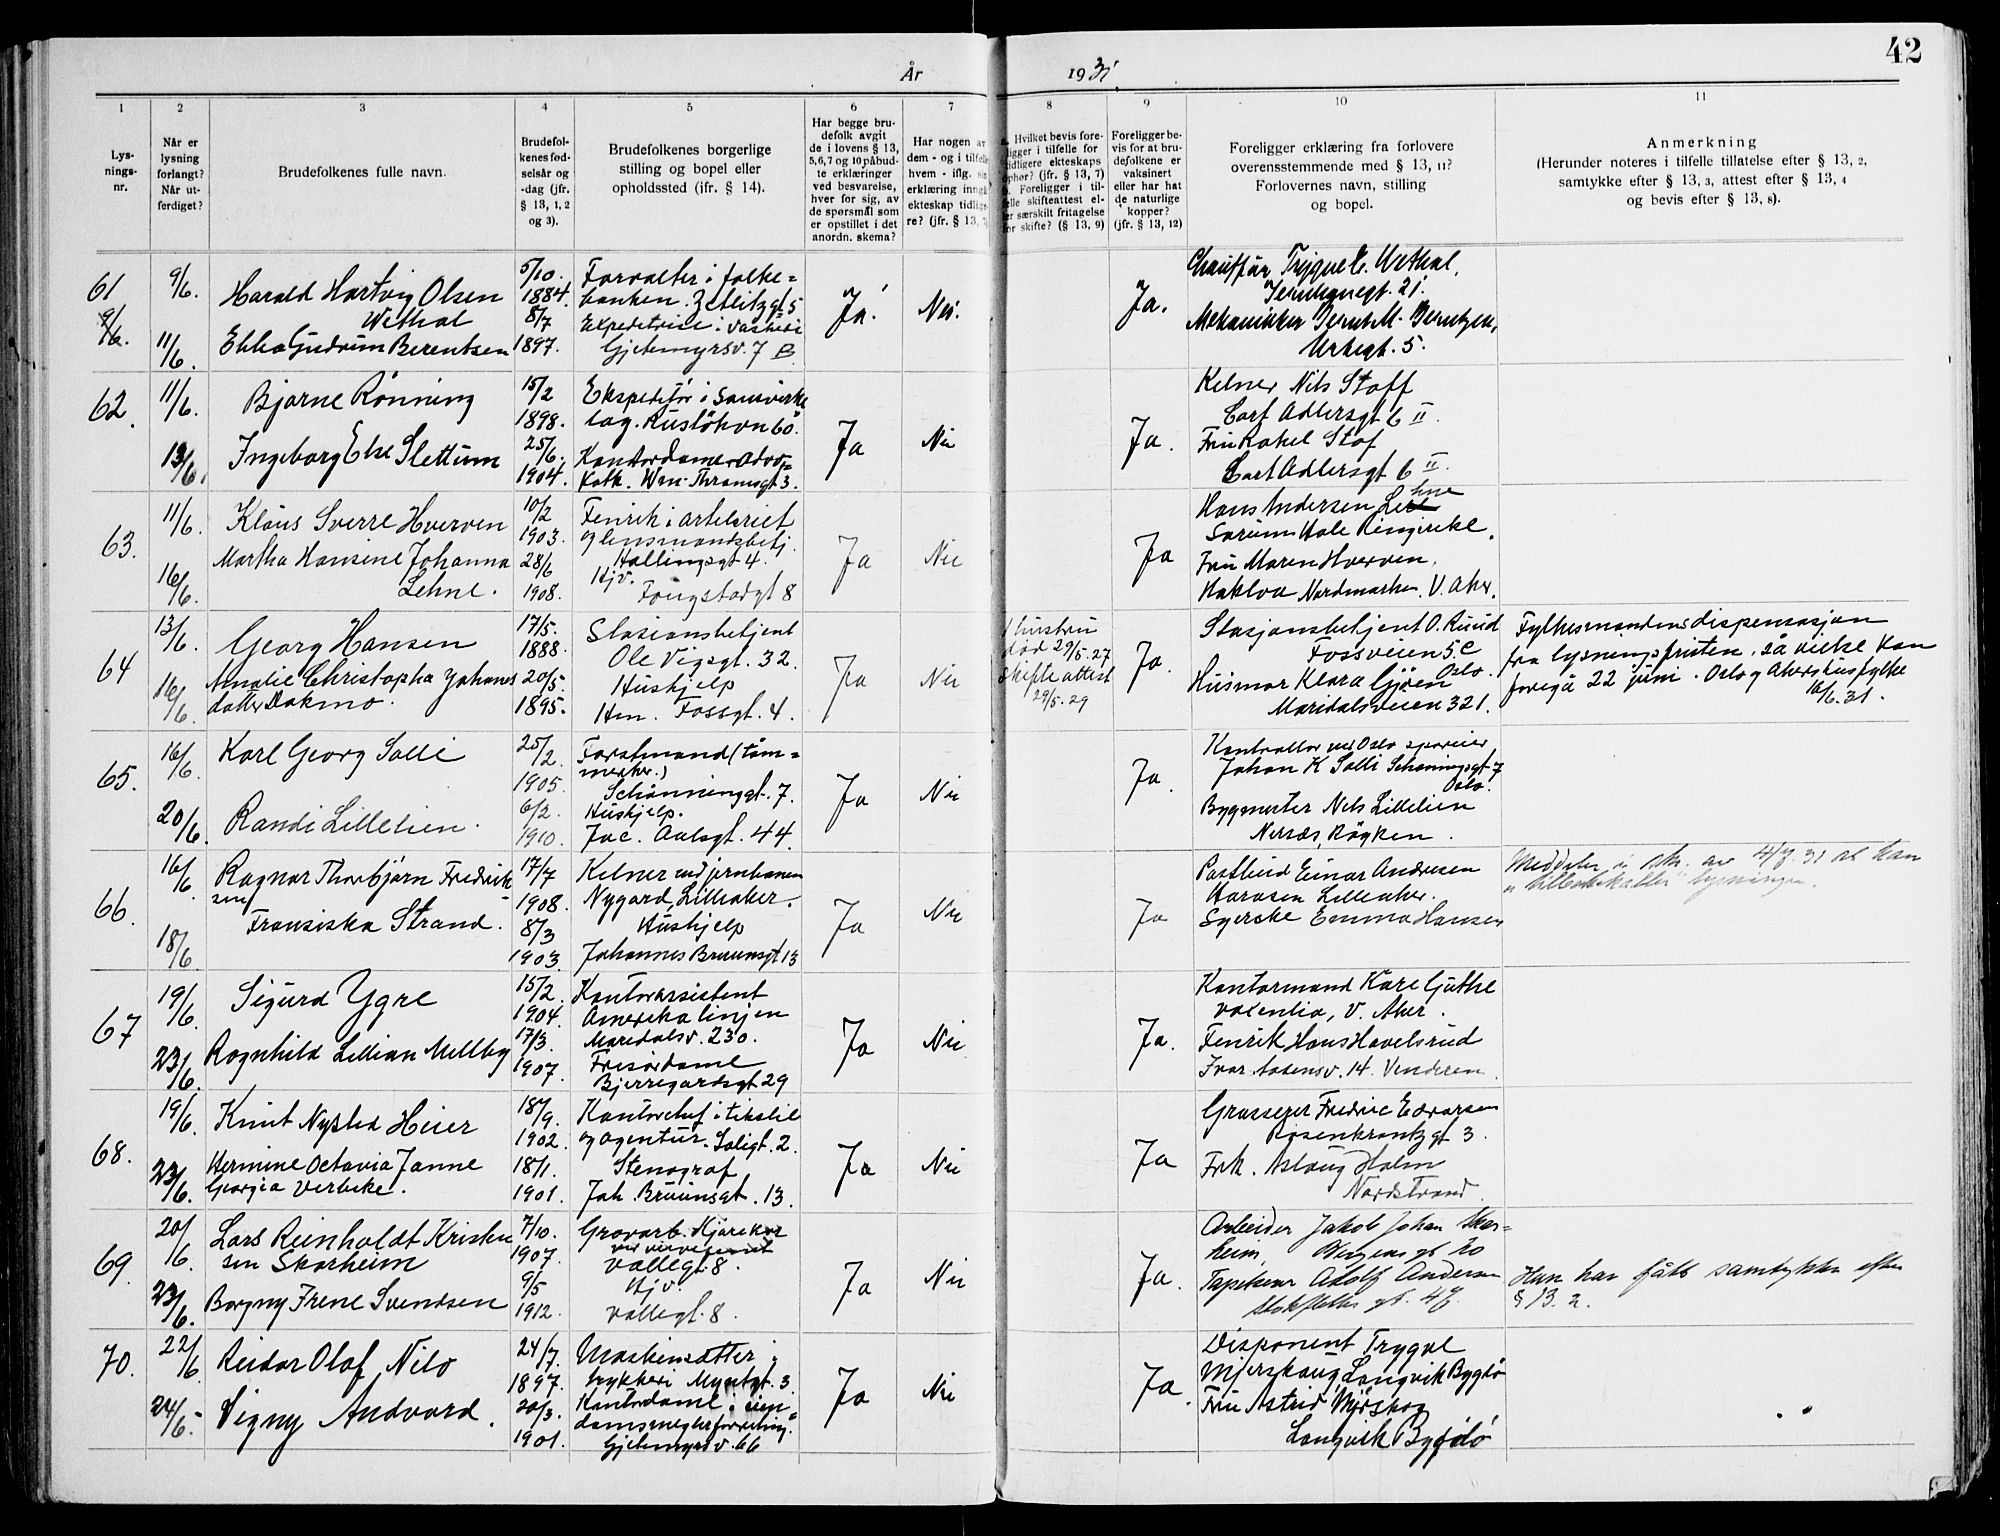 42
År 1931
1
2
3
4
5
6
7
8
9
10
11
Lys-
nings-
nr.
Når er
lysning
forlangt?
Når ut-
ferdiget?
Brudefolkenes fulle navn.
Brudefol-
kenes fød-
selsår og
-dag (jfr.
§ 13, 1, 2
og 3).
Brudefolkenes borgerlige
stilling og bopel eller
opholdssted (jfr. § 14).
Har begge bru-
defolk avgit
de i lovens § 13,
5,6,7 og 10 påbud-
te erklæringer
ved besvarelse,
hver for sig, av
de spørsmål som
er opstillet i det
anordn. skema?
Har nogen av
dem - og i tilfelle
hvem - iflg. sin
erklæring inngå
ekteskap tidlige-
re? (jfr. § 13, 7)
Hvilket bevis fore-
ligger i tilfelle for
tidligere ekteskaps
ophør? (jfr. § 13, 7)
Foreligger i til-
felle skifteattest el-
er særskilt fritagelse
for skifte? (§ 13, 9)
Foreligger be-
vis for at bru-
defolkene er
vaksinert
eller har hat
de naturlige
kopper?
(jfr. § 13, 12)
Foreligger erklæring fra forlovere
overensstemmende med § 13, 11?
Forlovernes navn, stilling
og bopel.
Anmerkning
(Herunder noteres i tilfelle tillatelse efter § 13, 2,
samtykke efter § 13, 3, attest efter § 13, 4
og bevis efter § 13, 8).
61
9/6.
9/6.
11/6.
Harald Hartvig Olsen
Wethal
Ebba Gudrun Berentsen
5/10.
1884.
8/7
1897.
Forvalter i folke=
banken. Zetlitzgt 5
Expeditrise i vaskeri
Gjetemyrsv. 7 B
Ja.
Nei.
Ja.
Chauffør Trygve C. Wethal,
21.
Mekanikker Bernt M. Berntzen,
Urtegt. 5.
62.
11/6.
13/6.
Bjarne Rønning
Ingeborg Else Slettum
15/2
1898.
25/6.
1904.
Ekspeditør i Samvirke
lag. Ruseløkvn 60.
Kontordame Advo=
katk. Wm. Thranesgt 3.
Ja
Nei
Ja.
Kelner Nils Stoff
Carl Adlersgt 6 II.
Fru Rakel Stof
Carl Adlersgt 6 II.
63.
11/6.
16/6.
Klaus Sverre Hverven
Martha Hansine Johanna
Lehne.
10/2
1903.
28/6
1908.
Fenrik i artileriet
og lensmandsbetj.
Hallingsgt 4.
Hjv.
Fougstadgt 8
Ja
Nei
Ja
Hans Andersen Lehne
Sørum Hole Ringerike.
Fru Maren Hverven.
Hakloa Nordmarka. V. Aker.
64
13/6.
16/6.
Georg Hansen
Amalie Christopha Johans
datter Dokmo.
17/5.
1888.
20/5.
1895.
Stasionsbetjent
Ole Vigsgt. 32.
Hushjelp
Hm. Fossgt. 4.
Ja
Nei
hustru
død 29/5.27
Skifteattest
29/5.29
Ja.
Stasjonsbetjent O. Ruud
Fossveien 5c
Oslo.
Husmor Klara Gjøen
Maridalsveien 321.
Fylkesmandens dispensasjon
fra lysningsfristen, så vielse kan
foregå 22 juni. Oslo og Akershus fylke
16/6.31.
65.
16/6.
20/6.
Karl Georg Solli
Randi Lillelien.
25/2.
1905.
6/2.
1910.
Forstmand (tøm=
merker.)
Schønninggt. 7.
Hushjelp.
Jac. Aalsgt. 44.
Ja
Nei
Ja.
Kontrollør ved Oslo sporveier
Johan K Solli Schønningsgt 7
Oslo.
Bygmester Nils Lillelien
Nersæs, Røyken.
66.
16/6.
18/6.
Ragnar Thorbjørn Fredrik
sen
Fransiska Strand.
17/7
1908.
8/3
1903.
Kelner ved jernbanen
Nygard, Lilleaker.
Hushjelp
Johannes Bruunsgt 13
Ja
Nei
Ja
Postbud Einar Andresen
Harasen Lilleaker.
Syerske Emma Hansen
Meddeler i skr. av 4/7. 31 at han
"tilbakekaller" lysningen.
67
19/6.
23/6.
Sigurd Ygre
Ragnhild Lillian Mellby
15/2.
1904.
17/3.
1907.
Kontorassistent
Amerika linjen
Maridalsv. 230.
Frisørdame
Bjerregardsgt 29
Ja
Nei
Ja.
Kontormand Kåre Guthe
Valentia, V. Aker.
Fenrik Hans Havelsrud
Ivar Aasensv. 14. Vinderen.
68.
19/6.
23/6.
Knut Nysted Heier
Hermine Octavia Janne
Georgia Verbeke.
18/9.
1902.
18/1.
1901.
Kontorchef i tekstil
og agentur. Soligt. 2.
Stenograf
Joh. Bruunsgt. 13.
Ja
Nei
Ja
Grosserer Fredric Edvarsen
Rosenkrantzgt 3.
Frk. Aslaug Holm
Nordstrand.
69.
20/6.
23/6.
Lars Reinholdt Kristen
sen Skorheim
Borgny Irene Svendsen
7/10.
1907.
9/5
1912.
Grovarb.
Vallegt. 8.
Hjv.
Vallegt. 8.
Ja
Nei
Ja.
Arbeider Jakob Johan Skor=
heim. Bergensgt 20
Tapetserer Adolf Andersen
gt. 47.
Hun har fått samtykke efter
§ 13. 2.
70.
22/6.
24/6.
Reidar Olaf Nilo
Vigny Andvord.
24/7.
1897.
20/3.
1901.
Maskinsætter i
trykkeri Myntgt. 3.
Kontordame i eien
domsmeglerforretning.
Gjetemyrsv. 66
Ja
Nei
Ja.
Disponent Trygve
Mjerskaug, Langvik Bygdø
Fru Astrid Mjørskog
Langvik Bygdø